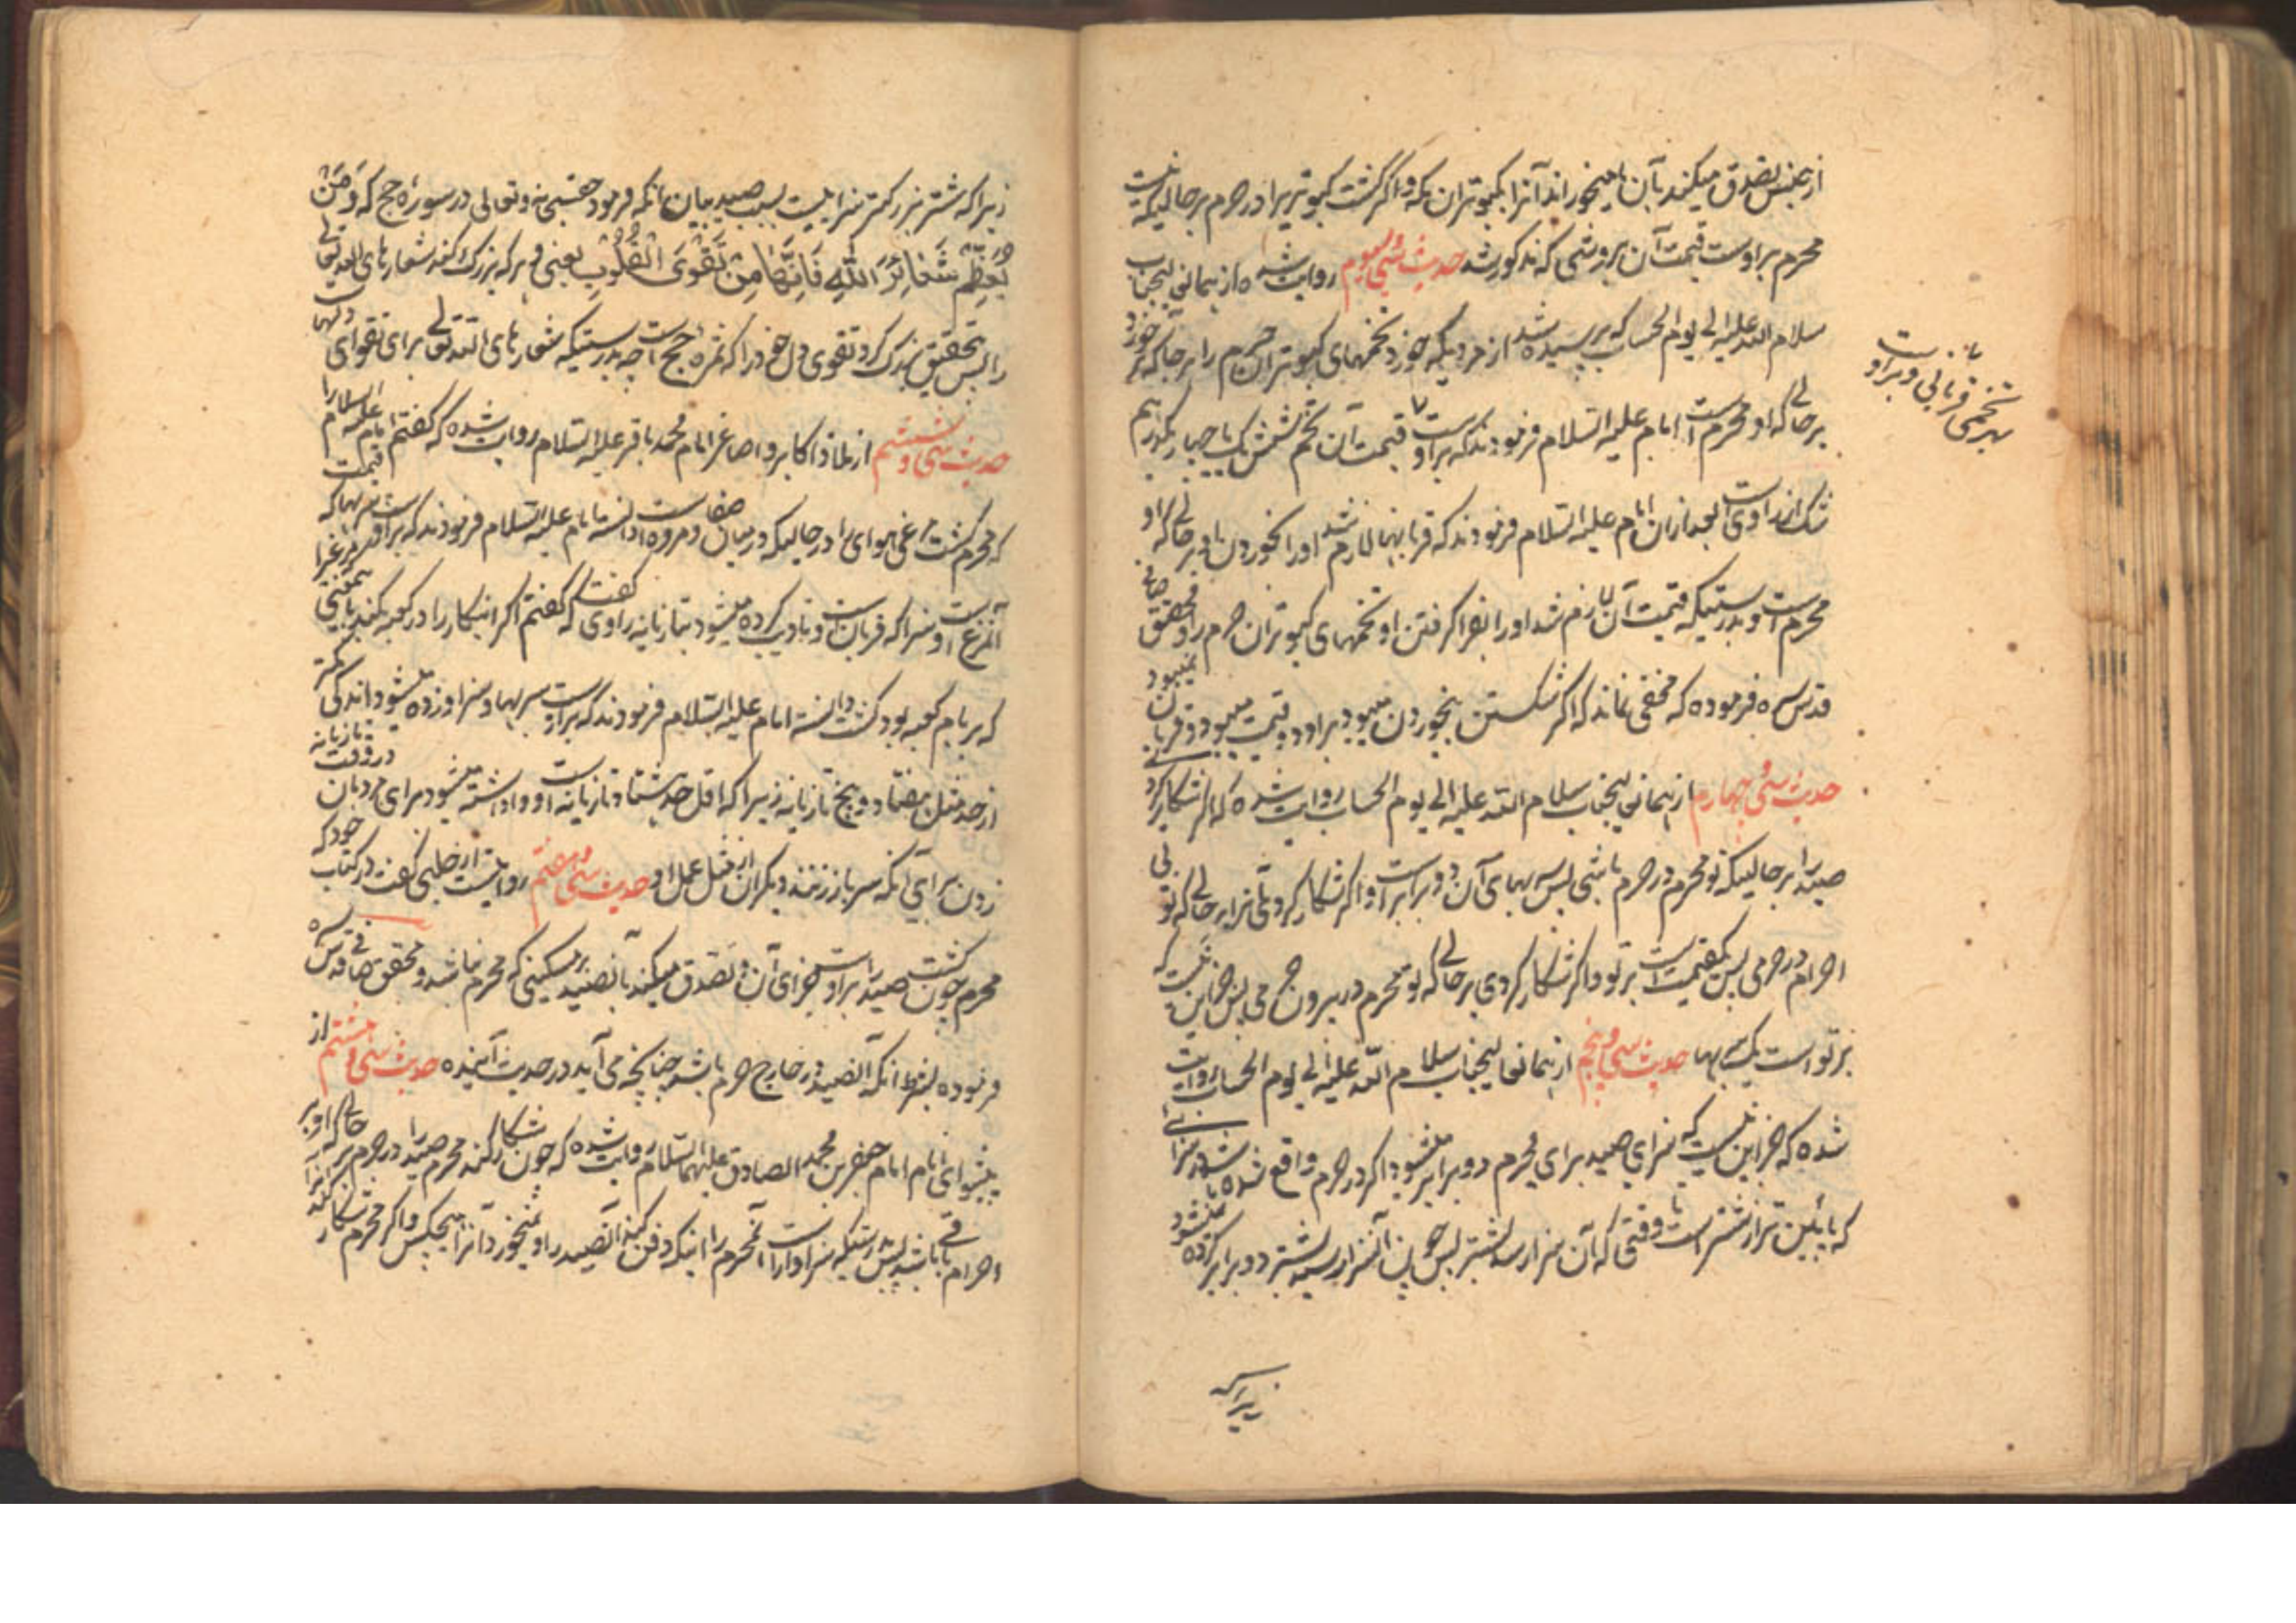 از جنس تصدق میکند بآن یا میخوراند آنرا بکبوتران مکه و اگر کشت کبوتریرا در حرم بر حالیکه نیست
محرم بر اوست قیمت آن بروشی که مذکور شد حدیث سی و سیوم روایت شده از همانی لیجناب
سلام الله علیه الی یوم الحساب که پرسیده شد از مردیکه خورد تخمهای کبوتران حرم را بر حالی که خورد
بر حالی که او محرم است امام علیه السلام فرمودند که بر اوست قیمت آن تخم شش یک یا چهار یک درهم
شک از راویست بعد ازان امام علیه السلام فرمودند که قربانیها لازم شد او را بخوردن او بر حالی که او
محرم است و بدرستیکه قیمت آن لازم شد او را بفرا گرفتن او تخمهای کبوتران حرم را و محقق صافی
قدس سره فرموده که مخفی نماند که اگر شکستن بخوردن میبود بر او دو قیمت میبود و قربانی نمیبود
حدیث سی و چهارم از همانی لیجناب سلام الله علیه الی یوم الحساب روایت شده که اگر شکار کردی
صید را بر حالیکه تو محرم در حرم باشی پس بهای آن دو برابر است بر تو و اگر شکار کردی تو آنرا بر حالی که تو بی
احرام در حرمی پس یک قیمت است بر تو و اگر شکار کردی بر حالی که تو محرم در بیرون حرمی پس جز این نیست که
بر تو است یک بها حدیث سی و پنجم از همانعالیجناب سلام الله علیه الی یوم الحساب روایت
شده که جز این نیست که سزای صید برای محرم دو برابر میشود اگر در حرم واقع شده باشد در سزائی
که پائین تر از شتر است تا وقتی که آن سزا رسد بشتر پس چون آنسزا رسید بشتر دو برابر کرده نمیشود
زیرا که
بهر تخمی قربانی و بر اوست
زیرا که شتر بزرگتر سزائیست بسبب صید بیان آنکه فرمود حق سبحانه و تعالی در سوره حج که وَمَنْ
یُعَظِّمْ شَعَائِرَ اللّٰهِ فَاِنَّهَا مِنْ تَقْوَی الْقُلُوبِ یعنی و هر که بزرگ کند شعارهای الله تعالی
را پس بتحقیق بزرگ کرد تقوی دل خود را که ثمره حج است چه بدرستیکه شعارهای الله تعالی برای تقوای دلهاست
حدیث سی و ششم از ملاذ اکابر و اصاغر امام محمد باقر علیه السلام روایت شده که گفتم امام علیه السلام را
که محرم کشت مرغی هوای را در حالیکه در میان صفا و مروه است دانسته امام علیه السلام فرمودند که بر اوست سر بهاکه قیمت
آنمرغ است و سزا که قربانیست و تادیب کرده میشود بتازیانه راوی گفت که گفتم اگر اینکار را در کعبه کند
که بر بام کعبه بود کشت دانسته امام علیه السلام فرمودند که بر اوست سر بها و سزا و زده میشود اندکی کمتر
از حد مثل هفتاد و پنج تازیانه زیرا که اقل حد هشتاد تازیانه است و واداشته میشود برای مردمان در وقت تازیانه
زدن برای آنکه سر باز زنند دیگران از مثل عمل او حدیث سی و هفتم روایتست از حلبی گفت در کتاب خود که
محرم چون کشت صید را بر اوست جزای آن و تصدق میکند بآنصید بر مسکینی که محرم نباشد و محقق صافی قدس سره
فرموده بشرط آنکه آنصید در خارج حرم باشد چنانچه می آید در حدیث آینده حدیث سی و هشتم از
پیشوای انام امام جعفر بن محمد الصادق علیهما السلام روایت شده که چون شکار کند محرم صید را در حرم بر حالی که او بر
احرام باقی باشد پس بدرستیکه سزاوار است آنمحرم را اینکه دفن کند آنصید را و نمیخورد آنرا هیچکس و اگر محرم شکار کند آنرا